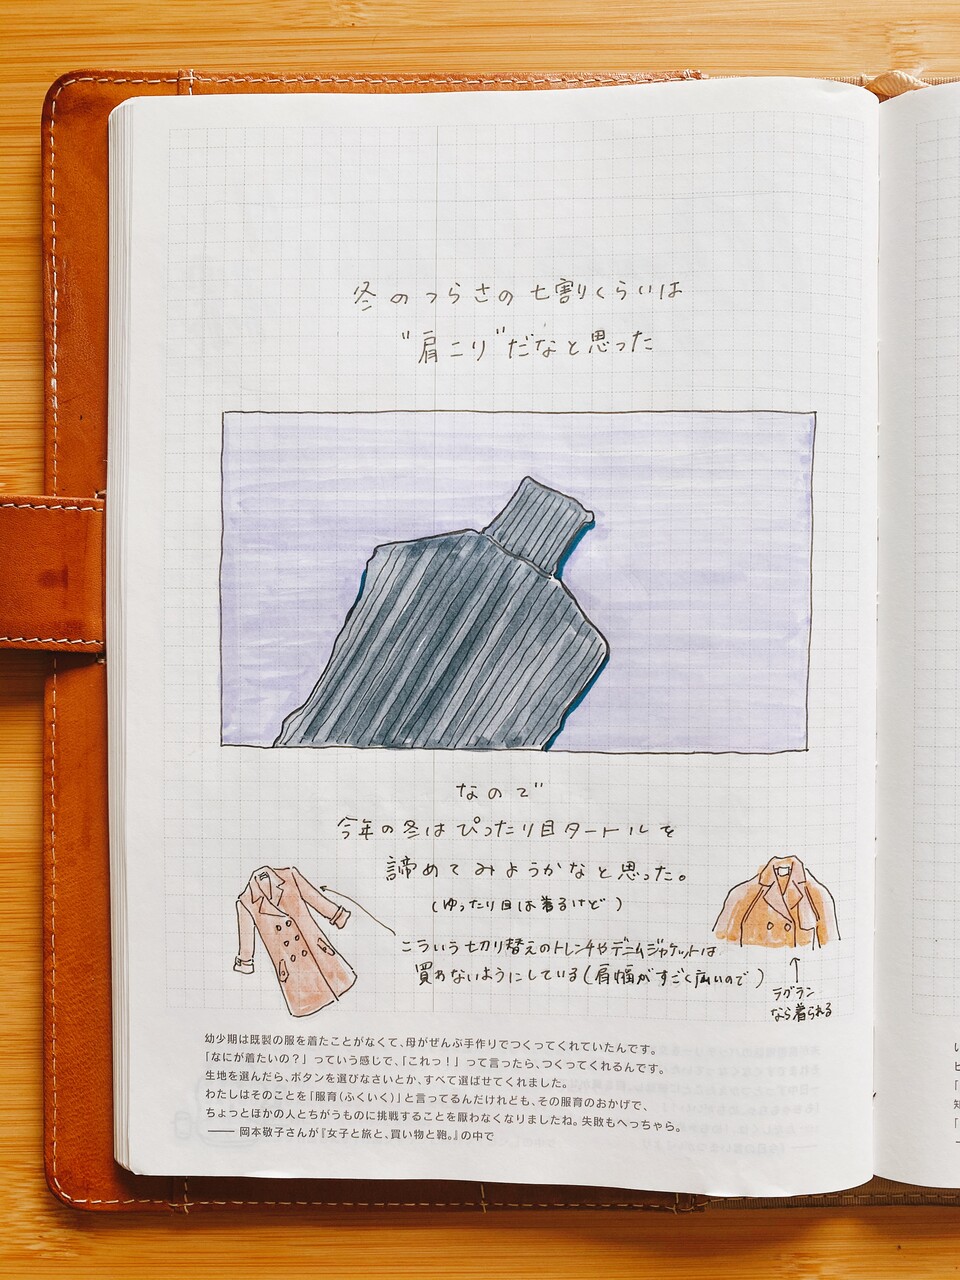 冬のつらさの七割くらいは
"肩こり"だなと思った
なので
今年の冬はぴったり目タートルを
諦めてみようかなと思った。
(ゆったり目は着るけど)
こういう切り替えのトレンチやデニムジャケットは
買わないようにしている(肩幅がすごく広いので)
ラグラン
なら着られる
幼少期は既製の服を着たことがなくて、母がぜんぶ手作りでつくってくれていたんです。
「なにが着たいの？」っていう感じで、「これっ！」って言ったら、つくってくれるんです。
生地を選んだら、ボタンを選びなさいとか、すべて選ばせてくれました。
わたしはそのことを「服育(ふくいく)」と言ってるんだけれども、その服育のおかげで、
ちょっとほかの人とちがうものに挑戦することを厭わなくなりましたね。失敗もへっちゃら。
―― 岡本敬子さんが『女子と旅と、買い物と鞄。』の中で